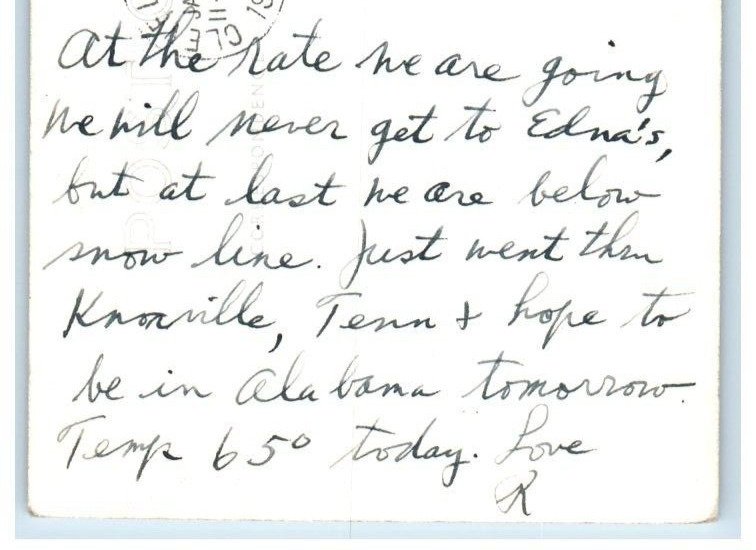 At the rate we are going
we will never get to Edna's,
but at last we are below
snow line. Just went thru
Knoxville, Tenn + hope to
be in Alabama tomorrow.
Temp 65° today. Love
R
POST
CORRESPONDENCE